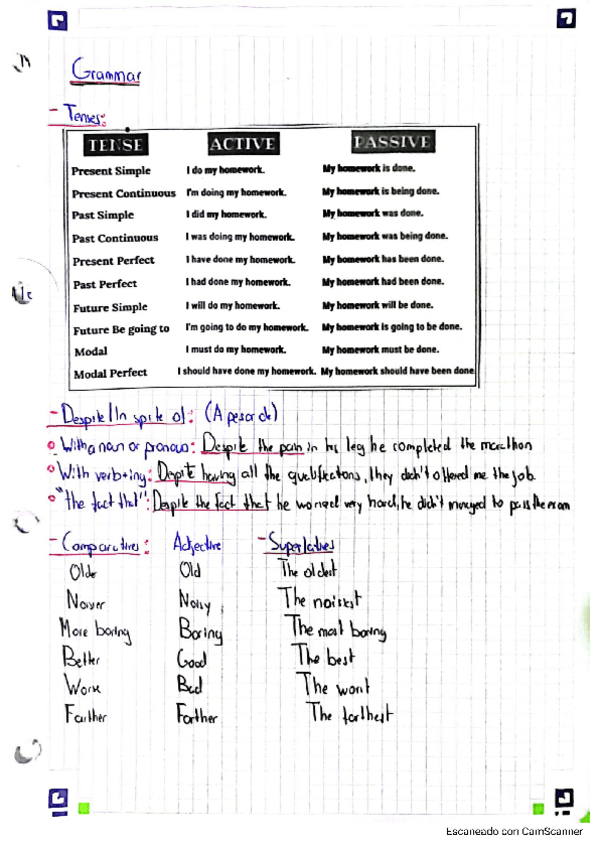 Grammar
- Tenses:
TENSE ACTIVE PASSIVE
Present Simple I do my homework. My homework is done.
Present Continuous I'm doing my homework. My homework is being done.
Past Simple I did my homework. My homework was done.
Past Continuous I was doing my homework. My homework was being done.
Present Perfect I have done my homework. My homework has been done.
Past Perfect I had done my homework. My homework had been done.
Future Simple I will do my homework. My homework will be done.
Future Be going to I'm going to do my homework. My homework is going to be done.
Modal I must do my homework. My homework must be done.
Modal Perfect I should have done my homework. My homework should have been done
- Despite/In spite of: (A pesar de)
With a noun or pronoun: Despite the pain in his leg he completed the marathon
With verb+ing: Depite having all the qualifications, they didn't offered me the job.
"the fact that": Despite the fact that he worked very hard, he didn't managed to pass the exam
- Comparatives: Adjective - Superlatives
Older Old The oldest
Noisier Noisy The noisiest
More boring Boring The most boring
Better Good The best
Worse Bad The worst
Farther Farther The farthest
Escaneado con CamScanner